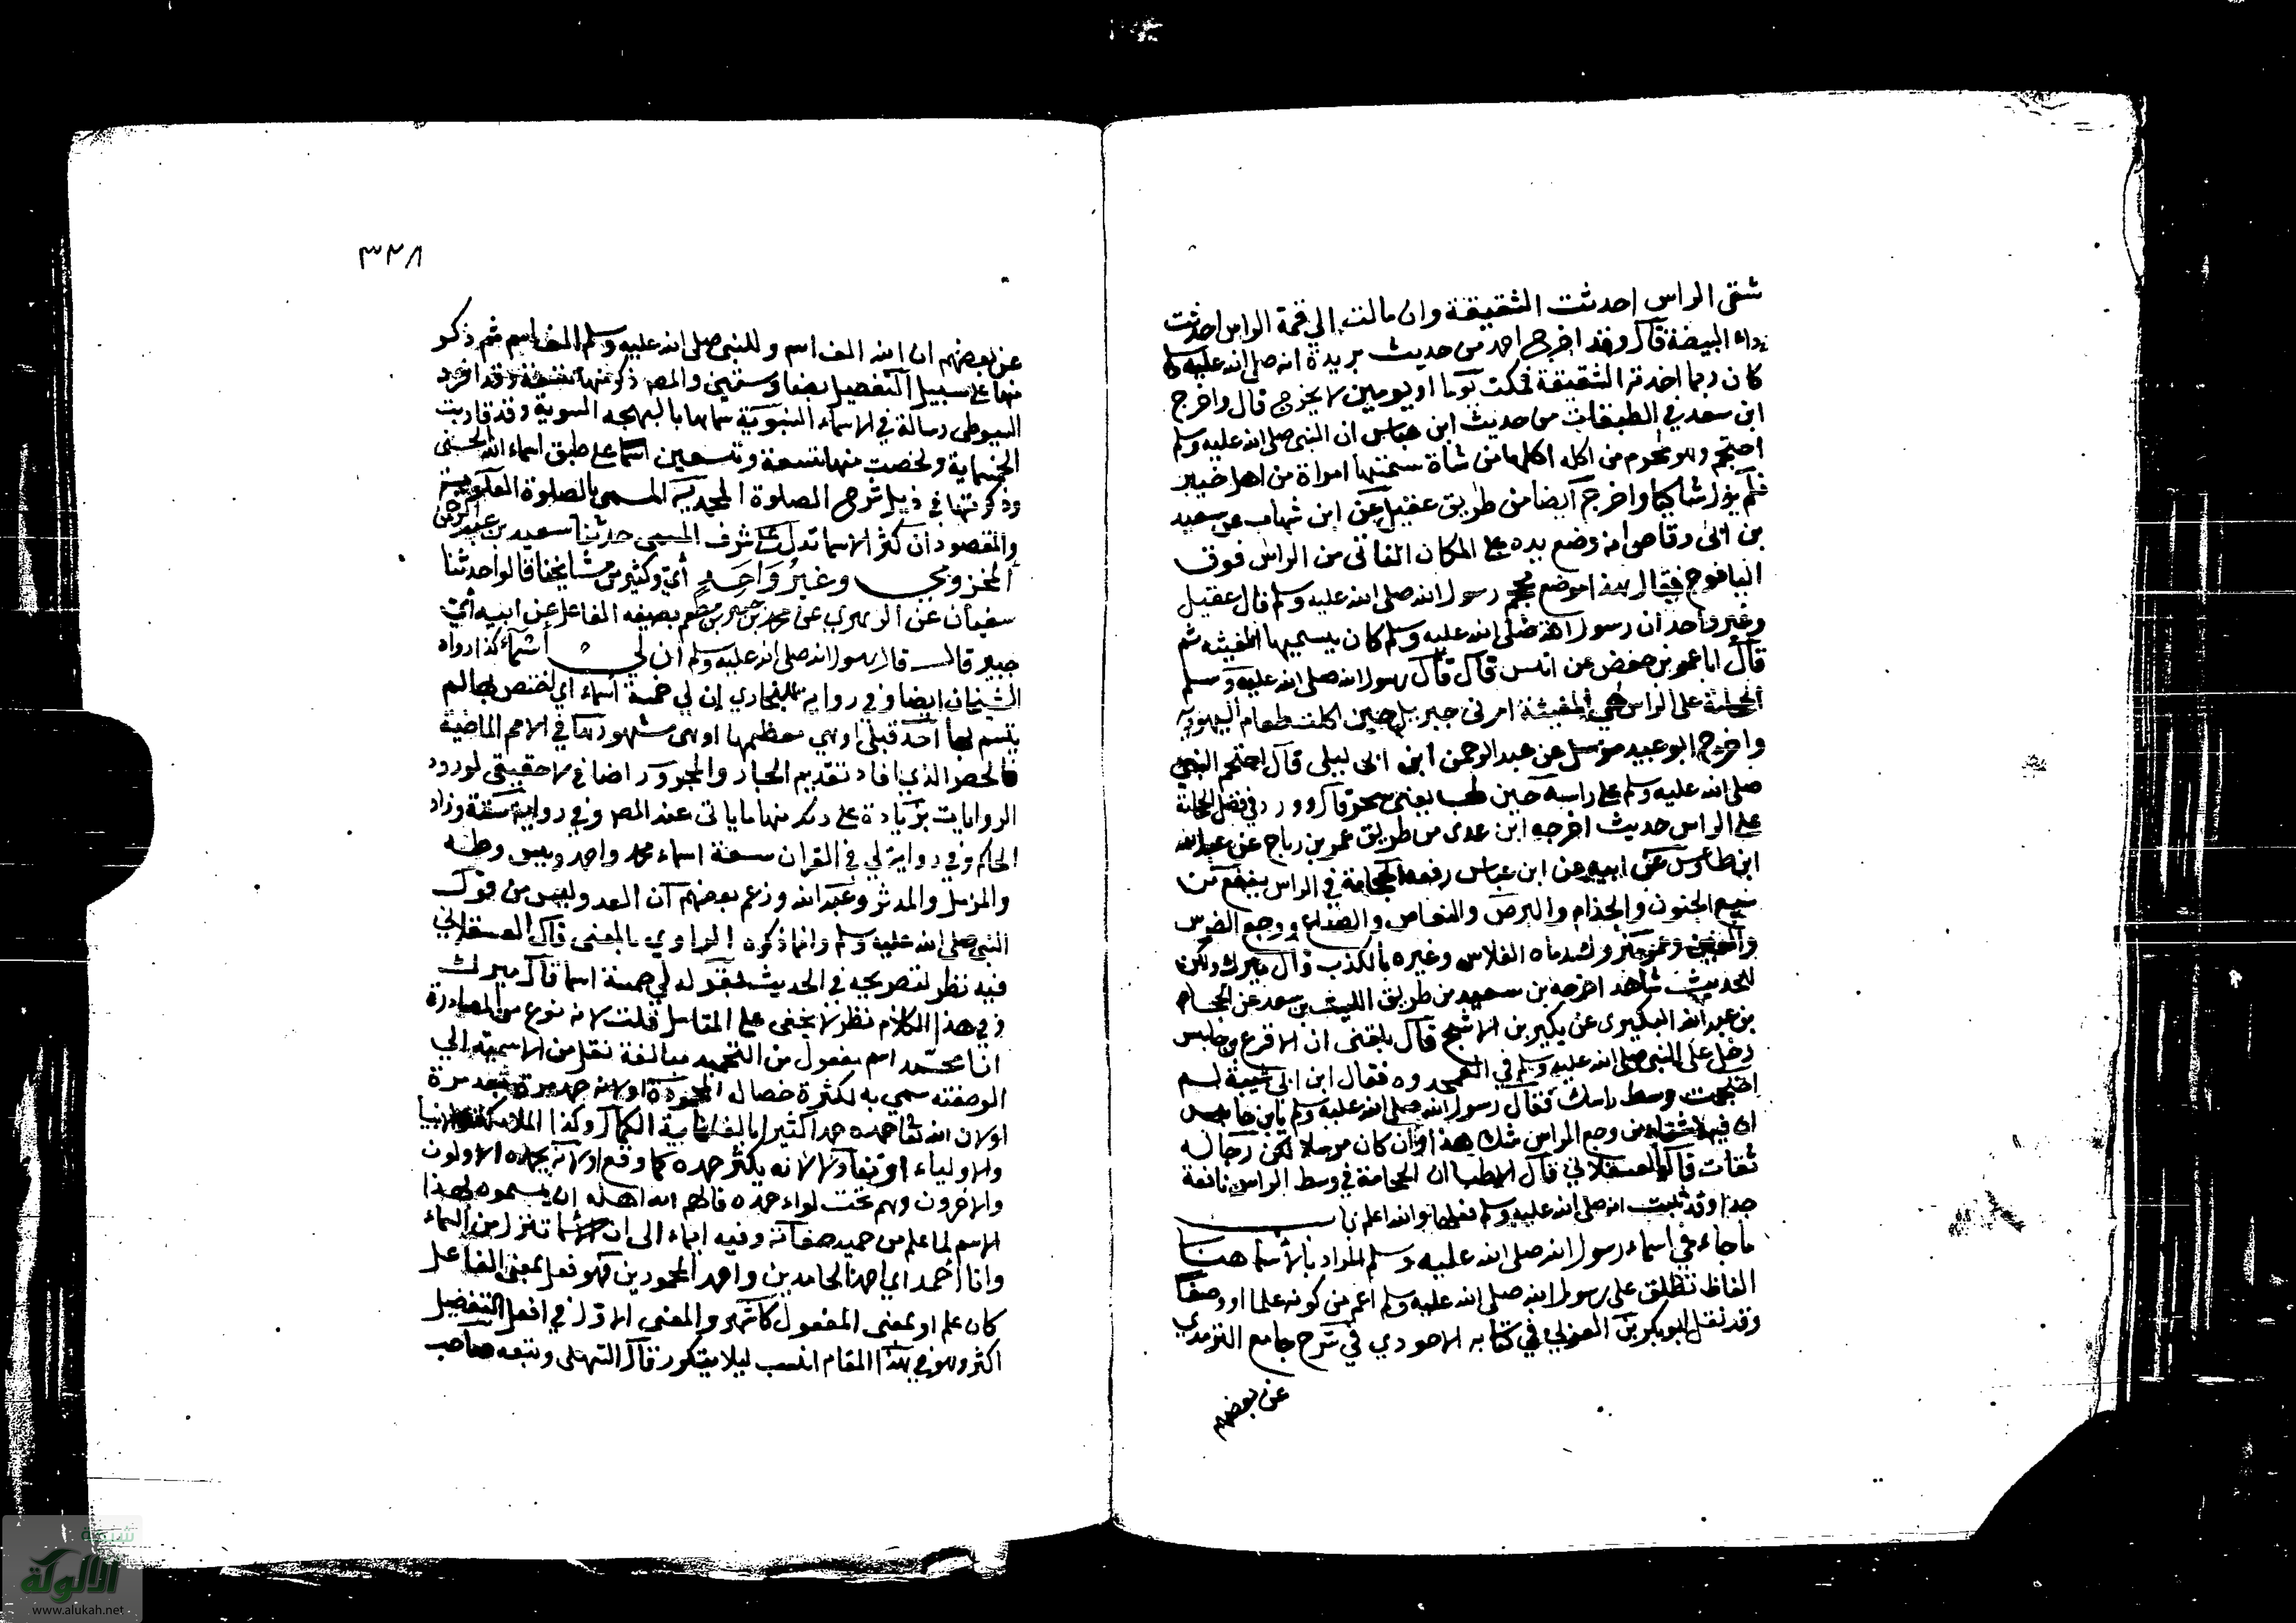 شقى الراس احدثت الشقيقة وان مالت الي قمة الراس احدثت
داء البيضة قال وقد اخرج احمد من حديث بريدة انه صلى الله عليه وسلم
كان ربما اخذته الشقيقة فمكث يوما او يومين لا يخرج قال واخرج
ابن سعد في الطبقات من حديث ابن عباس ان النبي صلى الله عليه وسلم
احتجم وهو محموم من اكله اكلها من شاة سمتها امراة من اهل خيبر
فلم يزل شاكيا واخرج ايضا من طريق عقيل عن ابن شهاب عن سعيد
بن ابي وقاص انه وضع يده على المكان الناتي من الراس فوق
اليافوخ فقال هذا موضع محجم رسول الله صلى الله عليه وسلم قال عقيل
وغير واحد ان رسول الله صلى الله عليه وسلم كان يسميها المغيثه ثم
قال انا عمر بن حفص عن انس قال قال رسول الله صلى الله عليه وسلم
الحجامة على الراس هي المغيثة امرني جبريل حين اكلت طعام اليهودية
واخرج ابو عبيد مرسل عن عبد الرحمن ابن ابي ليلى قال احتجم النبي
صلى الله عليه وسلم على راسه حين طب يعني سحر قال وورد في فضل الحجامة
على الراس حديث اخرجه ابن عدي من طريق عمر بن رباح عن عبد الله
ابن طاوس عن ابيه عن ابن عباس رفعه الحجامة في الراس ينفع من
سبع الجنون والجذام والبرص والنعاس والصداع ووجع الضرس
والعين وعمر متروك رماه الفلاس وغيره بالكذب قال ميرك ولكن
للحديث شاهد اخرجه بن سعد من طريق الليث بن سعد عن الحجاج
بن عبد الله الحميري عن بكير بن الاشج قال بلغني ان الاقرع بن حابس
دخل على النبي صلى الله عليه وسلم في القمحدوه فقال ابن ابي شيبة لم
احتجمت وسط راسك فقال رسول الله صلى الله عليه وسلم يا بن حابس
ان فيها شفاء من وجع الراس شك هذا وان كان مرسلا لكن رجاله
ثقات قال العسقلاني قال الاطبا ان الحجامة في وسط الراس نافعة
جدا وقد ثبت انه صلى الله عليه وسلم فعلها والله اعلم باب
ما جاء في اسماء رسول الله صلى الله عليه وسلم المراد بالأسما هنا
الفاظ تطلق على رسول الله صلى الله عليه وسلم اعم من كونه علما او وصفا
وقد نقل ابو بكر بن العربي في كتابه الاحوذي في شرح جامع الترمذي
عن بعضهم
٣٢٨
عن بعضهم ان لله الف اسم وللنبي صلى الله عليه وسلم الف اسم ثم ذكر
منها على سبيل التفصيل بضعا وستين والمص ذكر منها تسعة وقد افرد
السيوطي رسالة في الاسماء النبوية سماها بالبهجه السوية وقد قاربت
الخمسماية ولخصت منها تسعة وتسعين اسما على طبق اسماء الله الحسنى
وذكرتها في ذيل شرح الصلوة المحمدية المسمى بالصلوة العلوية
والمقصود ان كثر الاسما تدل على شرف المسمى حدثنا سعيد بن عبد الرحمن
المخزومي وغير واحد أي وكثير من مشايخنا قالوا حدثنا
سفيان عن الزهري عن محمد بن جبير بن مطعم بصيغه الفاعل عن ابيه أي
جبير قال قال رسول الله صلى الله عليه وسلم ان لي أسماء كذا رواه
الشيخان ايضا وفي رواية للبخاري إن لي خمسة أسماء اي اختص بها لم
يتسم بها احد قبلي اوهي معظمها اوهي مشهورتها في الامم الماضية
فالحصر الذي افاد تقديم الجار والمجرور اضافي لا حقيقي لورود
الروايات بزيادة على ذلك منها ما ياتي عند المص وفي رواية ستة وزاد
الحاكم وفي رواية لي في القران سبعة اسماء محمد واحمد ويس وطه
والمزمل والمدثر وعبد الله وزعم بعضهم ان العدد ليس من قول
النبي صلى الله عليه وسلم وانما ذكره الراوي بالمعنى قال العسقلاني
فيه نظر لتصريحه في الحديث بقوله لي خمسة اسما قال ميرك
وفي هذا الكلام نظر لا يخفى على المتامل قلت لانه نوع من المصادرة
انا محمد اسم مفعول من التحميد مبالغة نقل من الاسمية الي
الوصفته سمي به لكثرة خصاله المحمودة او لانه حمد مرة بعد مرة
او لان الله تعا حمده حمدا كثيرا بالغا غاية الكمال وكذا الملائكة والانبيا
والاولياء او تفاولا لانه يكثر حمده كما وقع او لانه يحمده الاولون
والاخرون وهم تحت لواء حمده فالهم الله اهله ان يسموه بهذا
الاسم لما علم من حميد صفاته وفيه ايماء الى ان الاسما تنزل من السماء
وانا أحمد اي احمد الحامدين واحمد المحمودين فهو فعل بمعنى الفاعل
كان علم او بمعنى المفعول كاشهر والمعنى الاول في افعل التفضيل
اكثر وهو في هذا المقام انسب ليلا يتكرر قال السهيلي وتبعه صاحب
شبكة
الألوكة
www.alukah.net